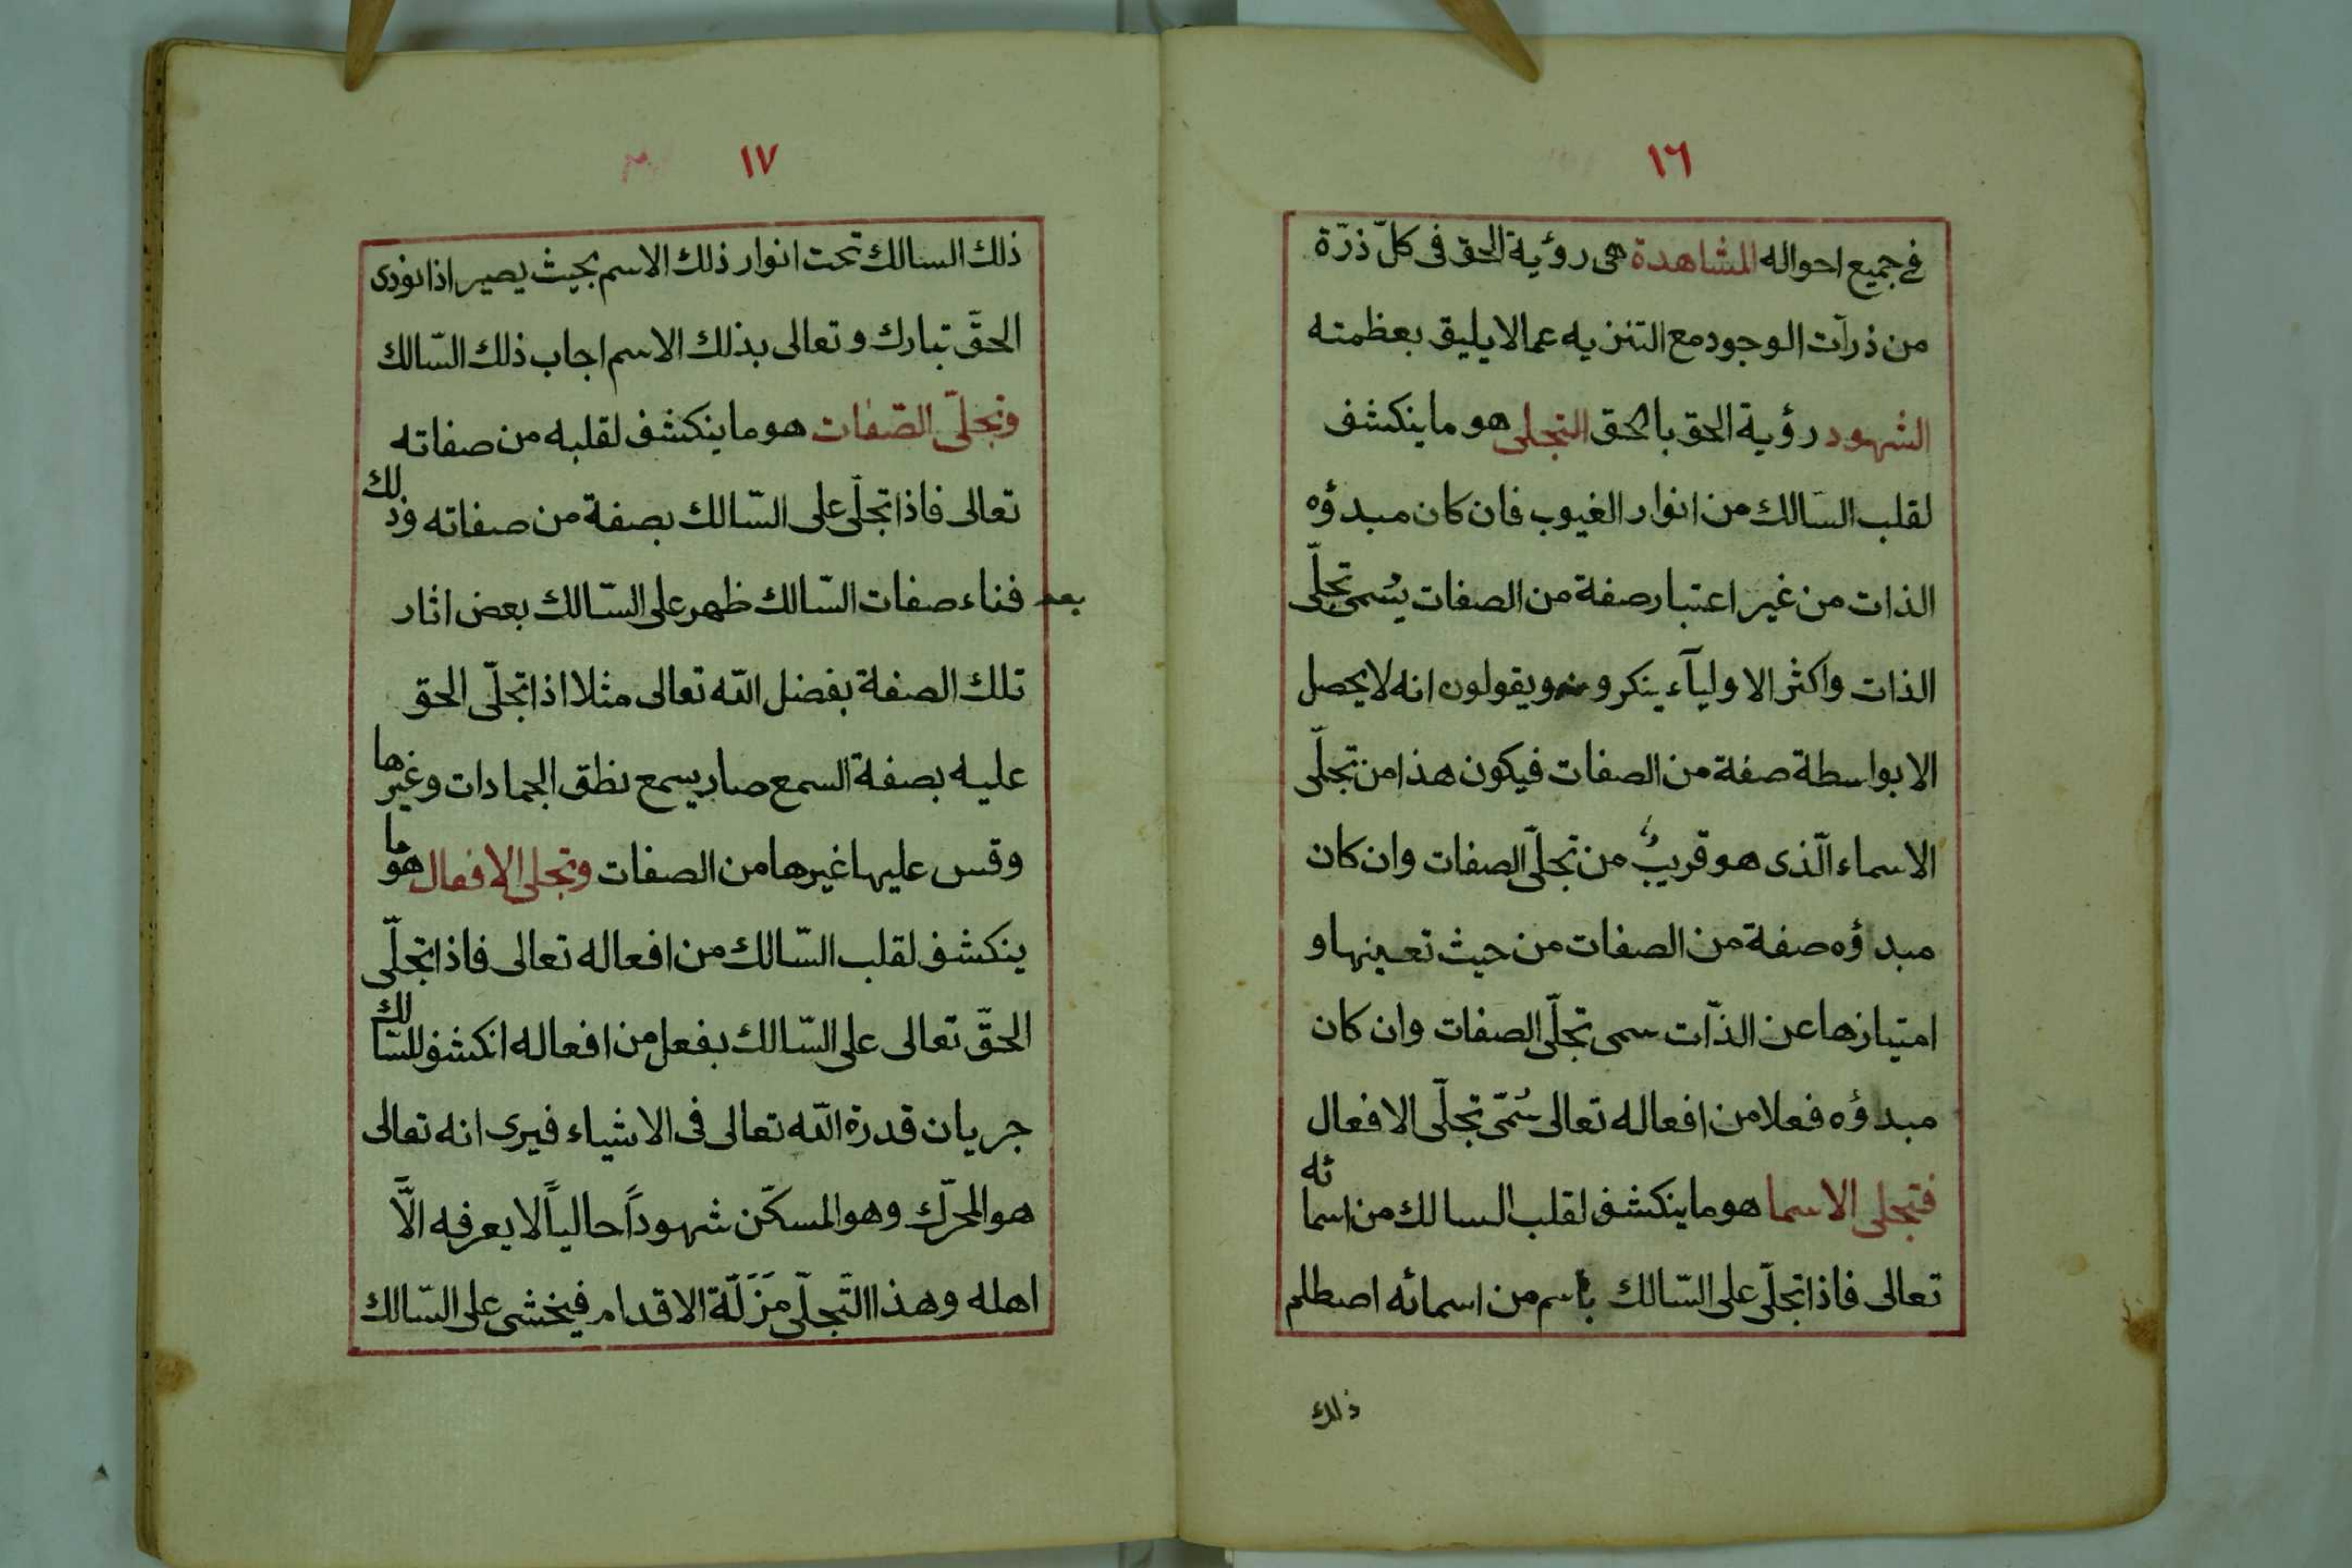 ١٦
في جميع احواله المشاهدة هى رؤية الحق فى كلّ ذرّة
من ذرآت الوجود مع التنزيه عمالا يليق بعظمته
الشهود رؤية الحق بالحق التجلى هو ما ينكشف
لقلب السّالك من انوار الغيوب فان كان مبدؤه
الذات من غير اعتبار صفة من الصفات يُسمى تجلّى
الذات واكثر الاوليآء ينكرونه ويقولون انه لا يحصل
الا بواسطة صفة من الصفات فيكون هذا من تجلّى
الاسماء الّذى هو قريبٌ من تجلّى الصفات وان كان
مبدؤه صفة من الصفات من حيث تعينها و
امتيازها عن الذّات سمى تجلّى الصفات وان كان
مبدؤه فعلا من افعاله تعالى سُمّى تجلّى الافعال
فتجلى الاسما هو ما ينكشف لقلب السالك من اسمائه
تعالى فاذا تجلّى على السّالك بأسم من اسمائه اصطلم
ذلك
١٧
ذلك السالك تحت انوار ذلك الاسم بحيث يصير اذا نودى
الحقّ تبارك وتعالى بذلك الاسم اجاب ذلك السّالك
وتجلّى الصّفات هو ما ينكشف لقلبه من صفاته
تعالى فاذا تجلّى على السّالك بصفة من صفاته وذلك
بعد فناء صفات السّالك ظهر على السّالك بعض اثار
تلك الصفة بفضل الله تعالى مثلا اذا تجلّى الحق
عليه بصفة السمع صار يسمع نطق الجمادات وغيرها
وقس عليها غيرها من الصفات وتجلى الافعال هو ما
ينكشف لقلب السّالك من افعاله تعالى فاذا تجلّى
الحقّ تعالى على السّالك بفعل من افعاله انكشف للسّالك
جريان قدرة الله تعالى فى الاشياء فيرى انه تعالى
هو المحرّك وهو المسكّن شهوداً حالياً لا يعرفه الّا
اهله وهذا التّجلّى مَزَلّة الاقدام فيخشى على السّالك